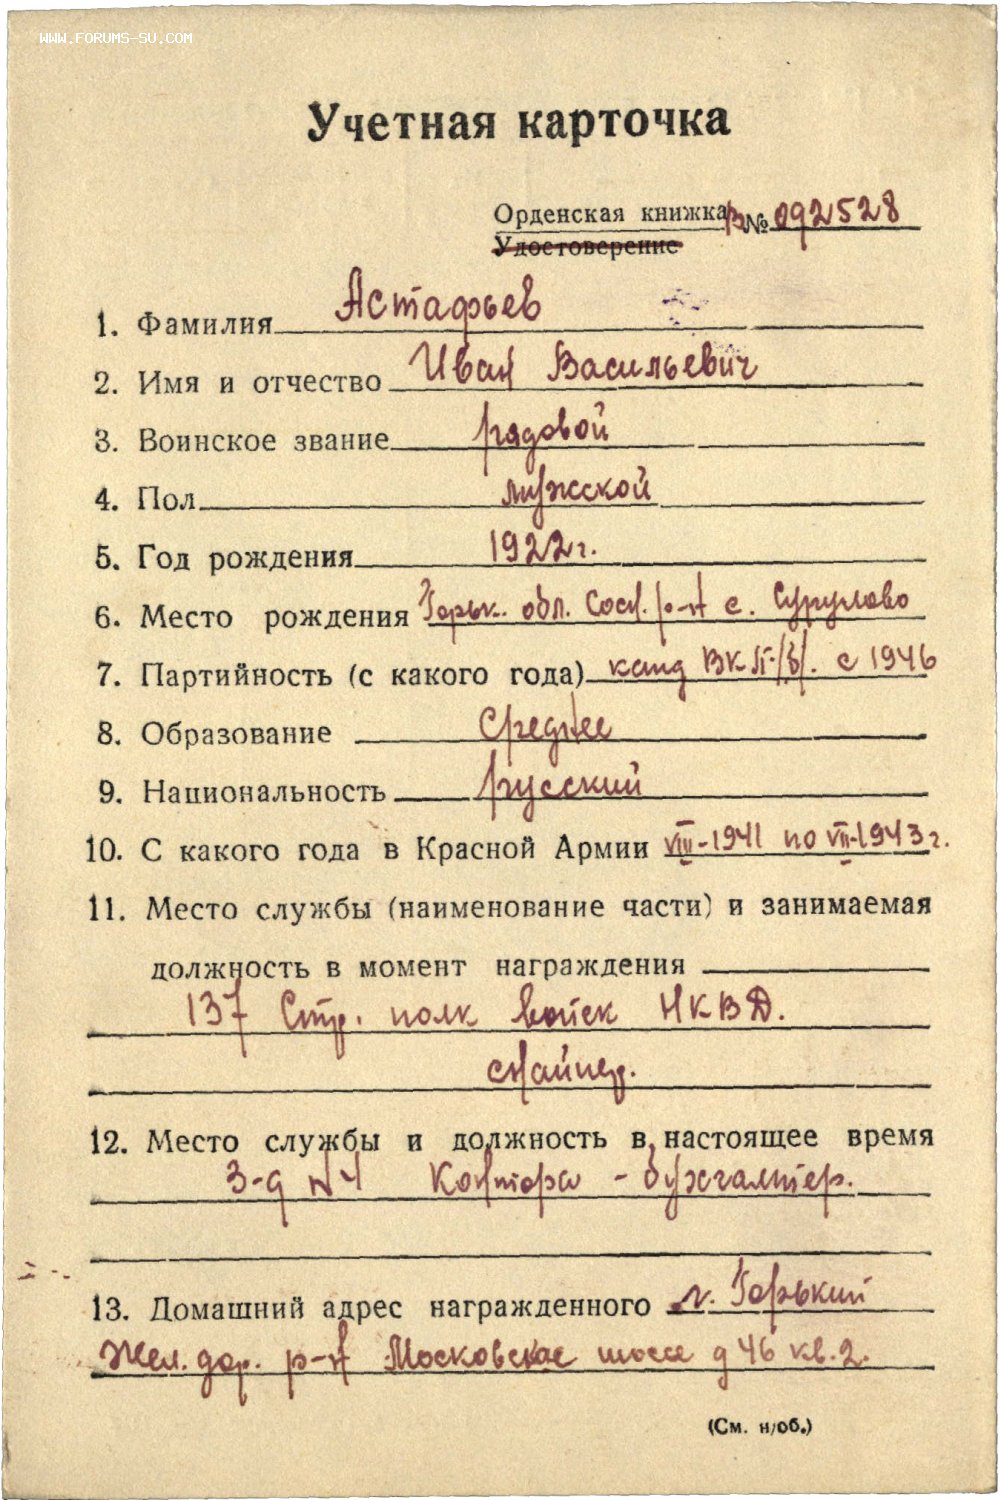 WWW.FORUMS-SU.COM
Учетная карточка
Орденская книжка В № 092528
Удостоверение
1. Фамилия Астафьев
2. Имя и отчество Иван Васильевич
3. Воинское звание рядовой
4. Пол мужской
5. Год рождения 1922 г.
6. Место рождения Горьк. обл. Сосн. р-н с. Сурулово
7. Партийность (с какого года) канд ВКП/б/. с 1946
8. Образование Среднее
9. Национальность русский
10. С какого года в Красной Армии VIII-1941 по VII-1943 г.
11. Место службы (наименование части) и занимаемая
должность в момент награждения
137 Стр. полк войск НКВД.
снайпер.
12. Место службы и должность в настоящее время
З-д №4 Контора - бухгалтер.
13. Домашний адрес награжденного г. Горький
Жел. дор. р-н Московское шоссе д 46 кв. 2.
(См. н/об.)